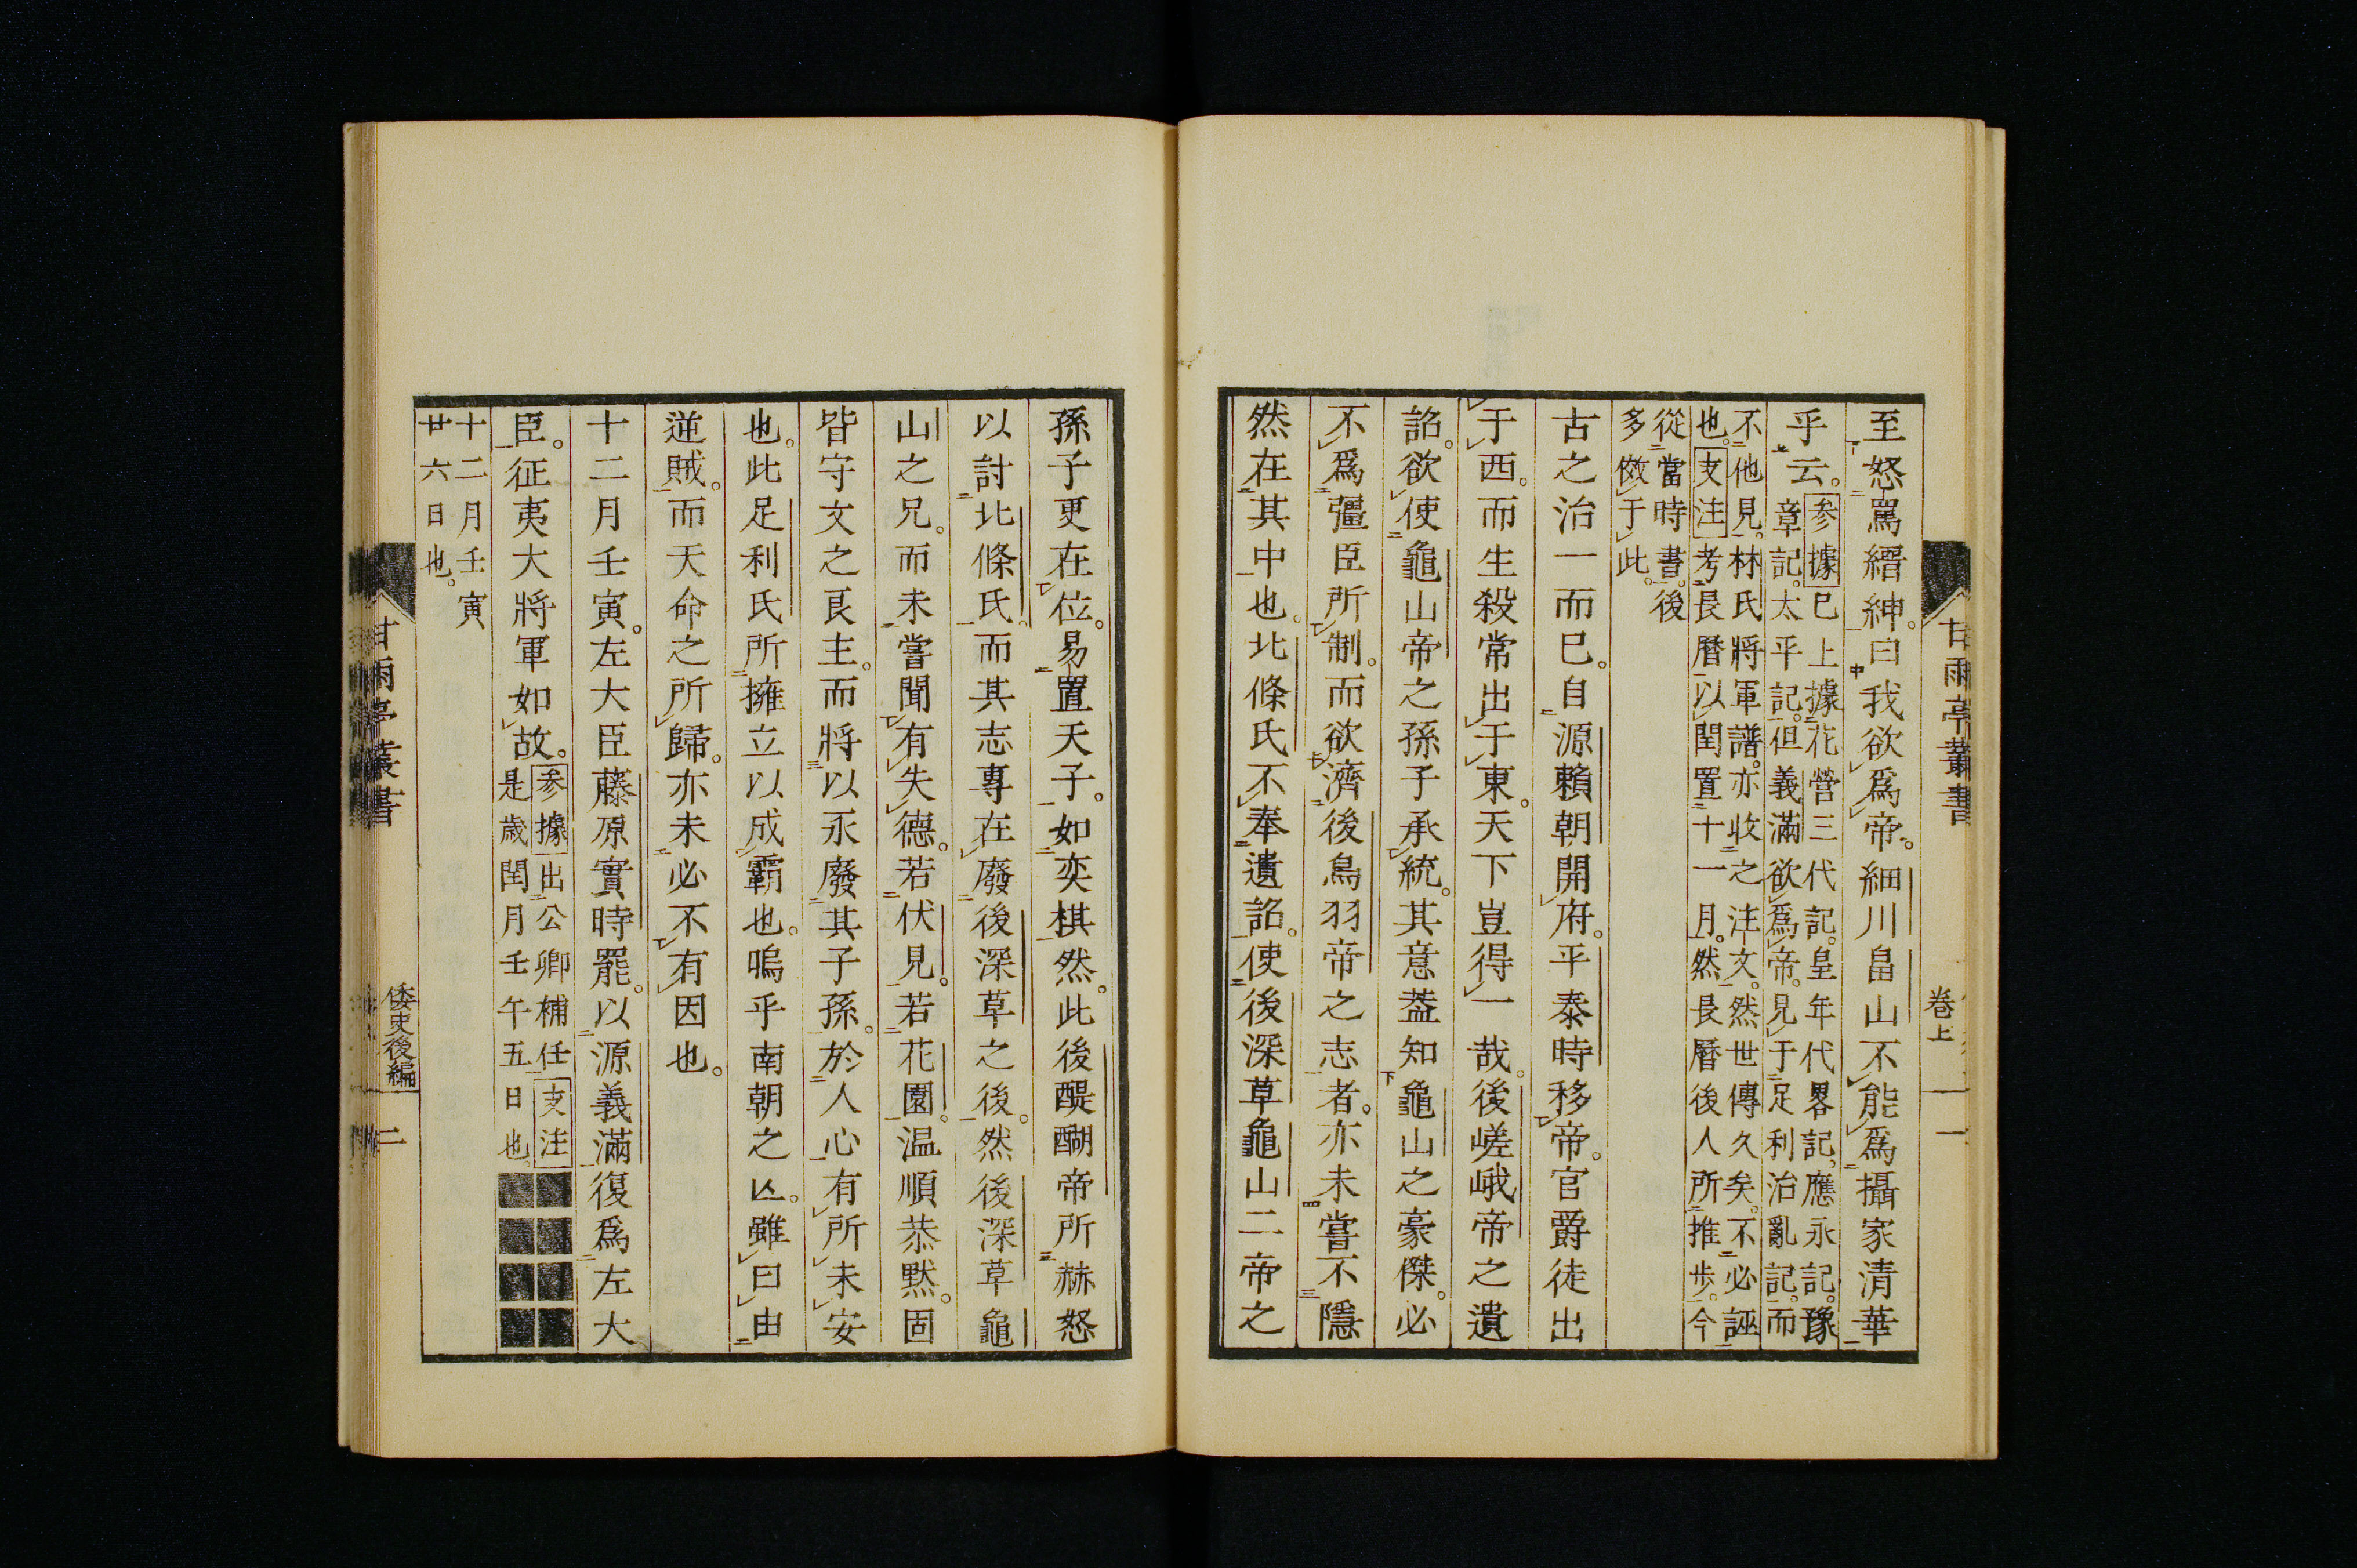 至怒罵縉紳。曰我欲爲帝。細川畠山不能爲攝家清華
乎云。
参據
已上據花營三代記。皇年代畧記。應永記。豫
章記。太平記。但義滿欲爲帝。見于足利治亂記。而
不他見。林氏將軍譜。亦收之注文。然世傳久矣。不必誣
也。
支注
考長曆以閏置十一月。然長曆後人所推歩。今
從當時書。後
多倣于此。
古之治一而已。自源賴朝開府。平泰時移帝。官爵徒出
于西。而生殺常出于東。天下豈得一哉。後嵯峨帝之遺
詔。欲使龜山帝之孫子承統。其意葢知龜山之豪傑。必
不爲彊臣所制。而欲濟後鳥羽帝之志者。亦未嘗不隱
然在其中也。北條氏不奉遺詔。使後深草龜山二帝之
甘雨亭叢書
卷上
一
孫子更在位。易置天子。如奕棋然。此後醍醐帝所赫怒
以討北條氏。而其志專在廢後深草之後。然後深草龜
山之兄。而未嘗聞有失德。若伏見。若花園。温順恭默。固
皆守文之良主。而將以永廢其子孫。於人心有所未安
也。此足利氏所擁立以成霸也。嗚乎南朝之亾。雖曰由
逆賊。而天命之所歸。亦未必不有因也。
十二月壬寅。左大臣藤原實時罷。以源義滿復爲左大
臣。征夷大將軍如故。
参據
出公卿補任
支注
是歲閏月壬午五日也。
十二月壬寅
廿六日也。
甘雨亭叢書
倭史後編
二